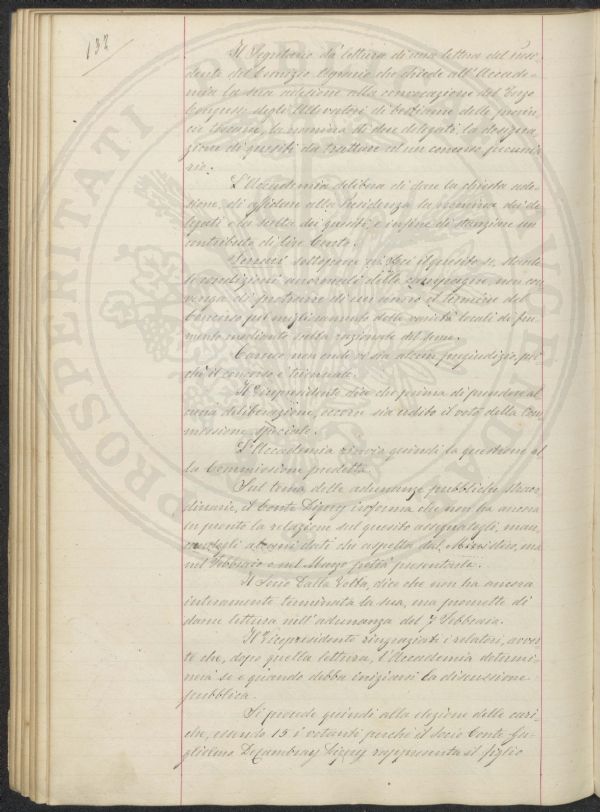 132
Il Segretario dà lettura di una lettera del Presi-
dente del Comizio Agrario che chiede all'Accade-
mia la sua adesione alla convocazione del Terzo
Congresso degli Allevatori di bestiame delle provin-
cie toscane, la nomina di due delegati, la designa-
zione di quesiti da trattare ed un concorso pecunia-
rio.
L'Accademia delibera di dare la chiesta ade-
sione, di affidare alla Presidenza la nomina dei de-
legati e la scelta dei quesiti, e infine di stanziare un
contributo di lire Cento.
sottopone ai Soci il quesito se, stante
le condizioni anormali delle campagne, non con-
venga di protrarre di un anno il termine del
Concorso pel miglioramento delle varietà locali di fru-
mento mediante scelta razionale del seme.
Caruso non crede vi sia alcun pregiudizio, poi-
chè il concorso è triennale.
Il Vicepresidente dice che prima di prendere al-
cuna deliberazione, occorre sia udito il voto della Com-
missione speciale.
L'Accademia rinvia quindi la questione al-
la Commissione predetta.
Sul tema delle adunanze pubbliche straor-
dinarie, il Conte Digny informa che non ha ancora
in pronto la relazione sul quesito assegnatogli, man-
candogli alcuni dati che aspetta dal Ministero, ma
nel Febbraio o nel Marzo potrà presentarla.
Il Socio Dalla Volta, dice che non ha ancora
interamente terminata la sua, ma promette di
darne lettura nell'adunanza del 7 Febbraio.
Il Vicepresidente ringraziati i relatori, avver-
te che, dopo quella lettura, l'Accademia determi-
nerà se e quando debba iniziarsi la discussione
pubblica.
Si procede quindi alla elezione delle cari-
che, essendo 15 i votanti perchè il socio Conte Gu-
glielmo Decambray Digny rappresenta il figlio
PROSPERITATI PUBLICAE AUGENDAE